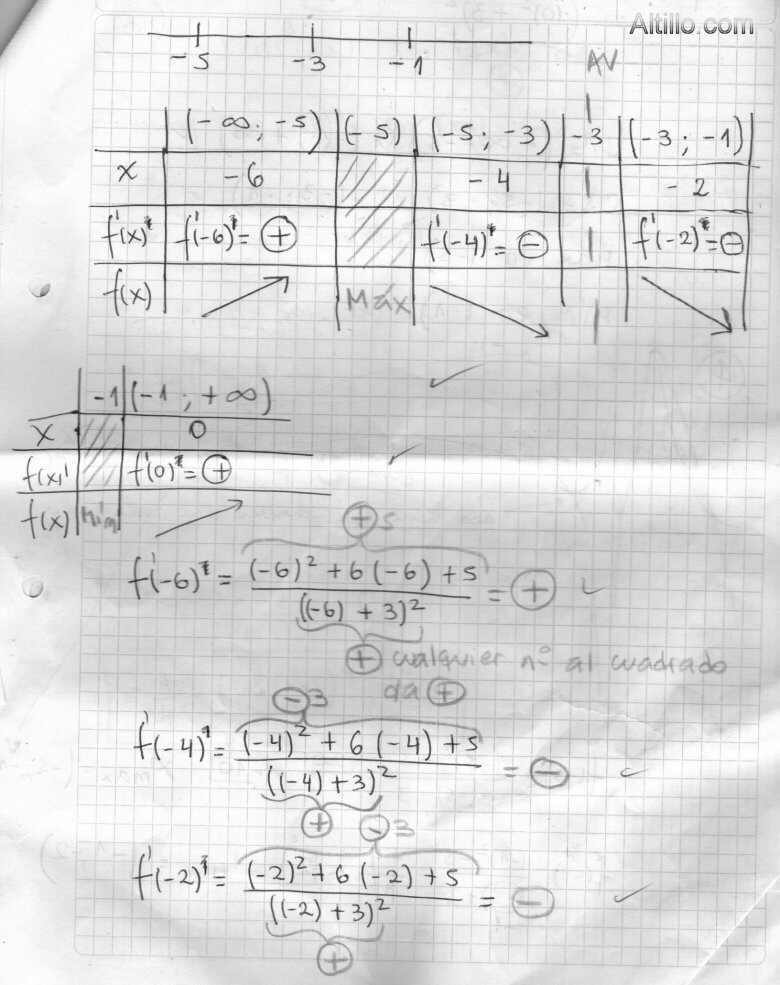 Altillo.com
-5 -3 -1 AV
(-∞ ; -5) (-5) (-5 ; -3) -3 (-3 ; -1)
x -6 -4 -2
f'(x) f'(-6) = + f'(-4) = - f'(-2) = -
f(x) Máx
-1 (-1 ; +∞)
x 0
f(x)' f'(0) = +
f(x) Mín
+ 5
f'(-6) = (-6)² + 6(-6) + 5 / ((-6) + 3)² = +
+ cualquier nº al cuadrado
da +
- 3
f'(-4) = (-4)² + 6(-4) + 5 / ((-4) + 3)² = -
+ - 3
f'(-2) = (-2)² + 6(-2) + 5 / ((-2) + 3)² = -
+